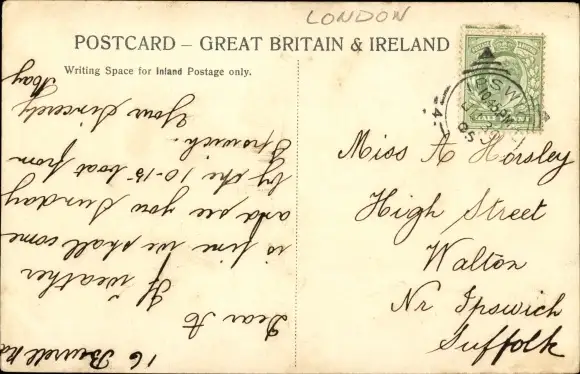 LONDON
POSTCARD – GREAT BRITAIN & IRELAND
Writing Space for Inland Postage only.
16 Burrell Rd
Dear A
If weather
is fine we shall come
and see you Sunday
by the 10-15 boat from
Ipswich.
Your Sincerely
May
IPSWICH
05
Miss A Horsley
High Street
Walton
Nr Ipswich
Suffolk